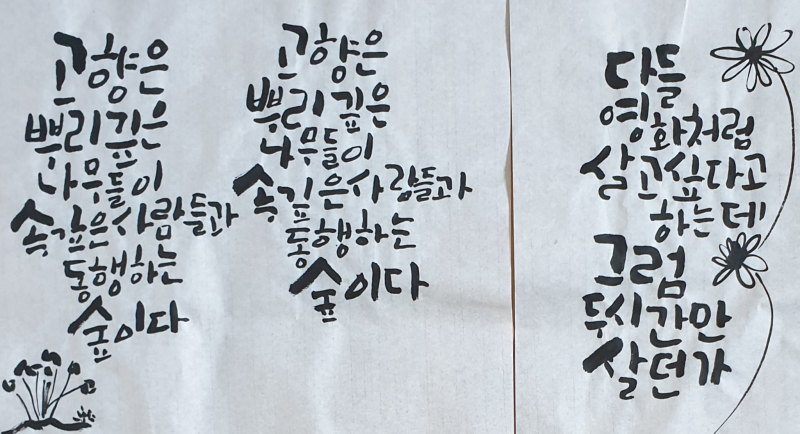 고향은
뿌리 깊은
나무들이
속 깊은 사람들과
동행하는
숲이다
고향은
뿌리 깊은
나무들이
속 깊은 사람들과
동행하는
숲이다
다들
영화처럼
살고싶다고
하는데
그럼
두시간만
살던가